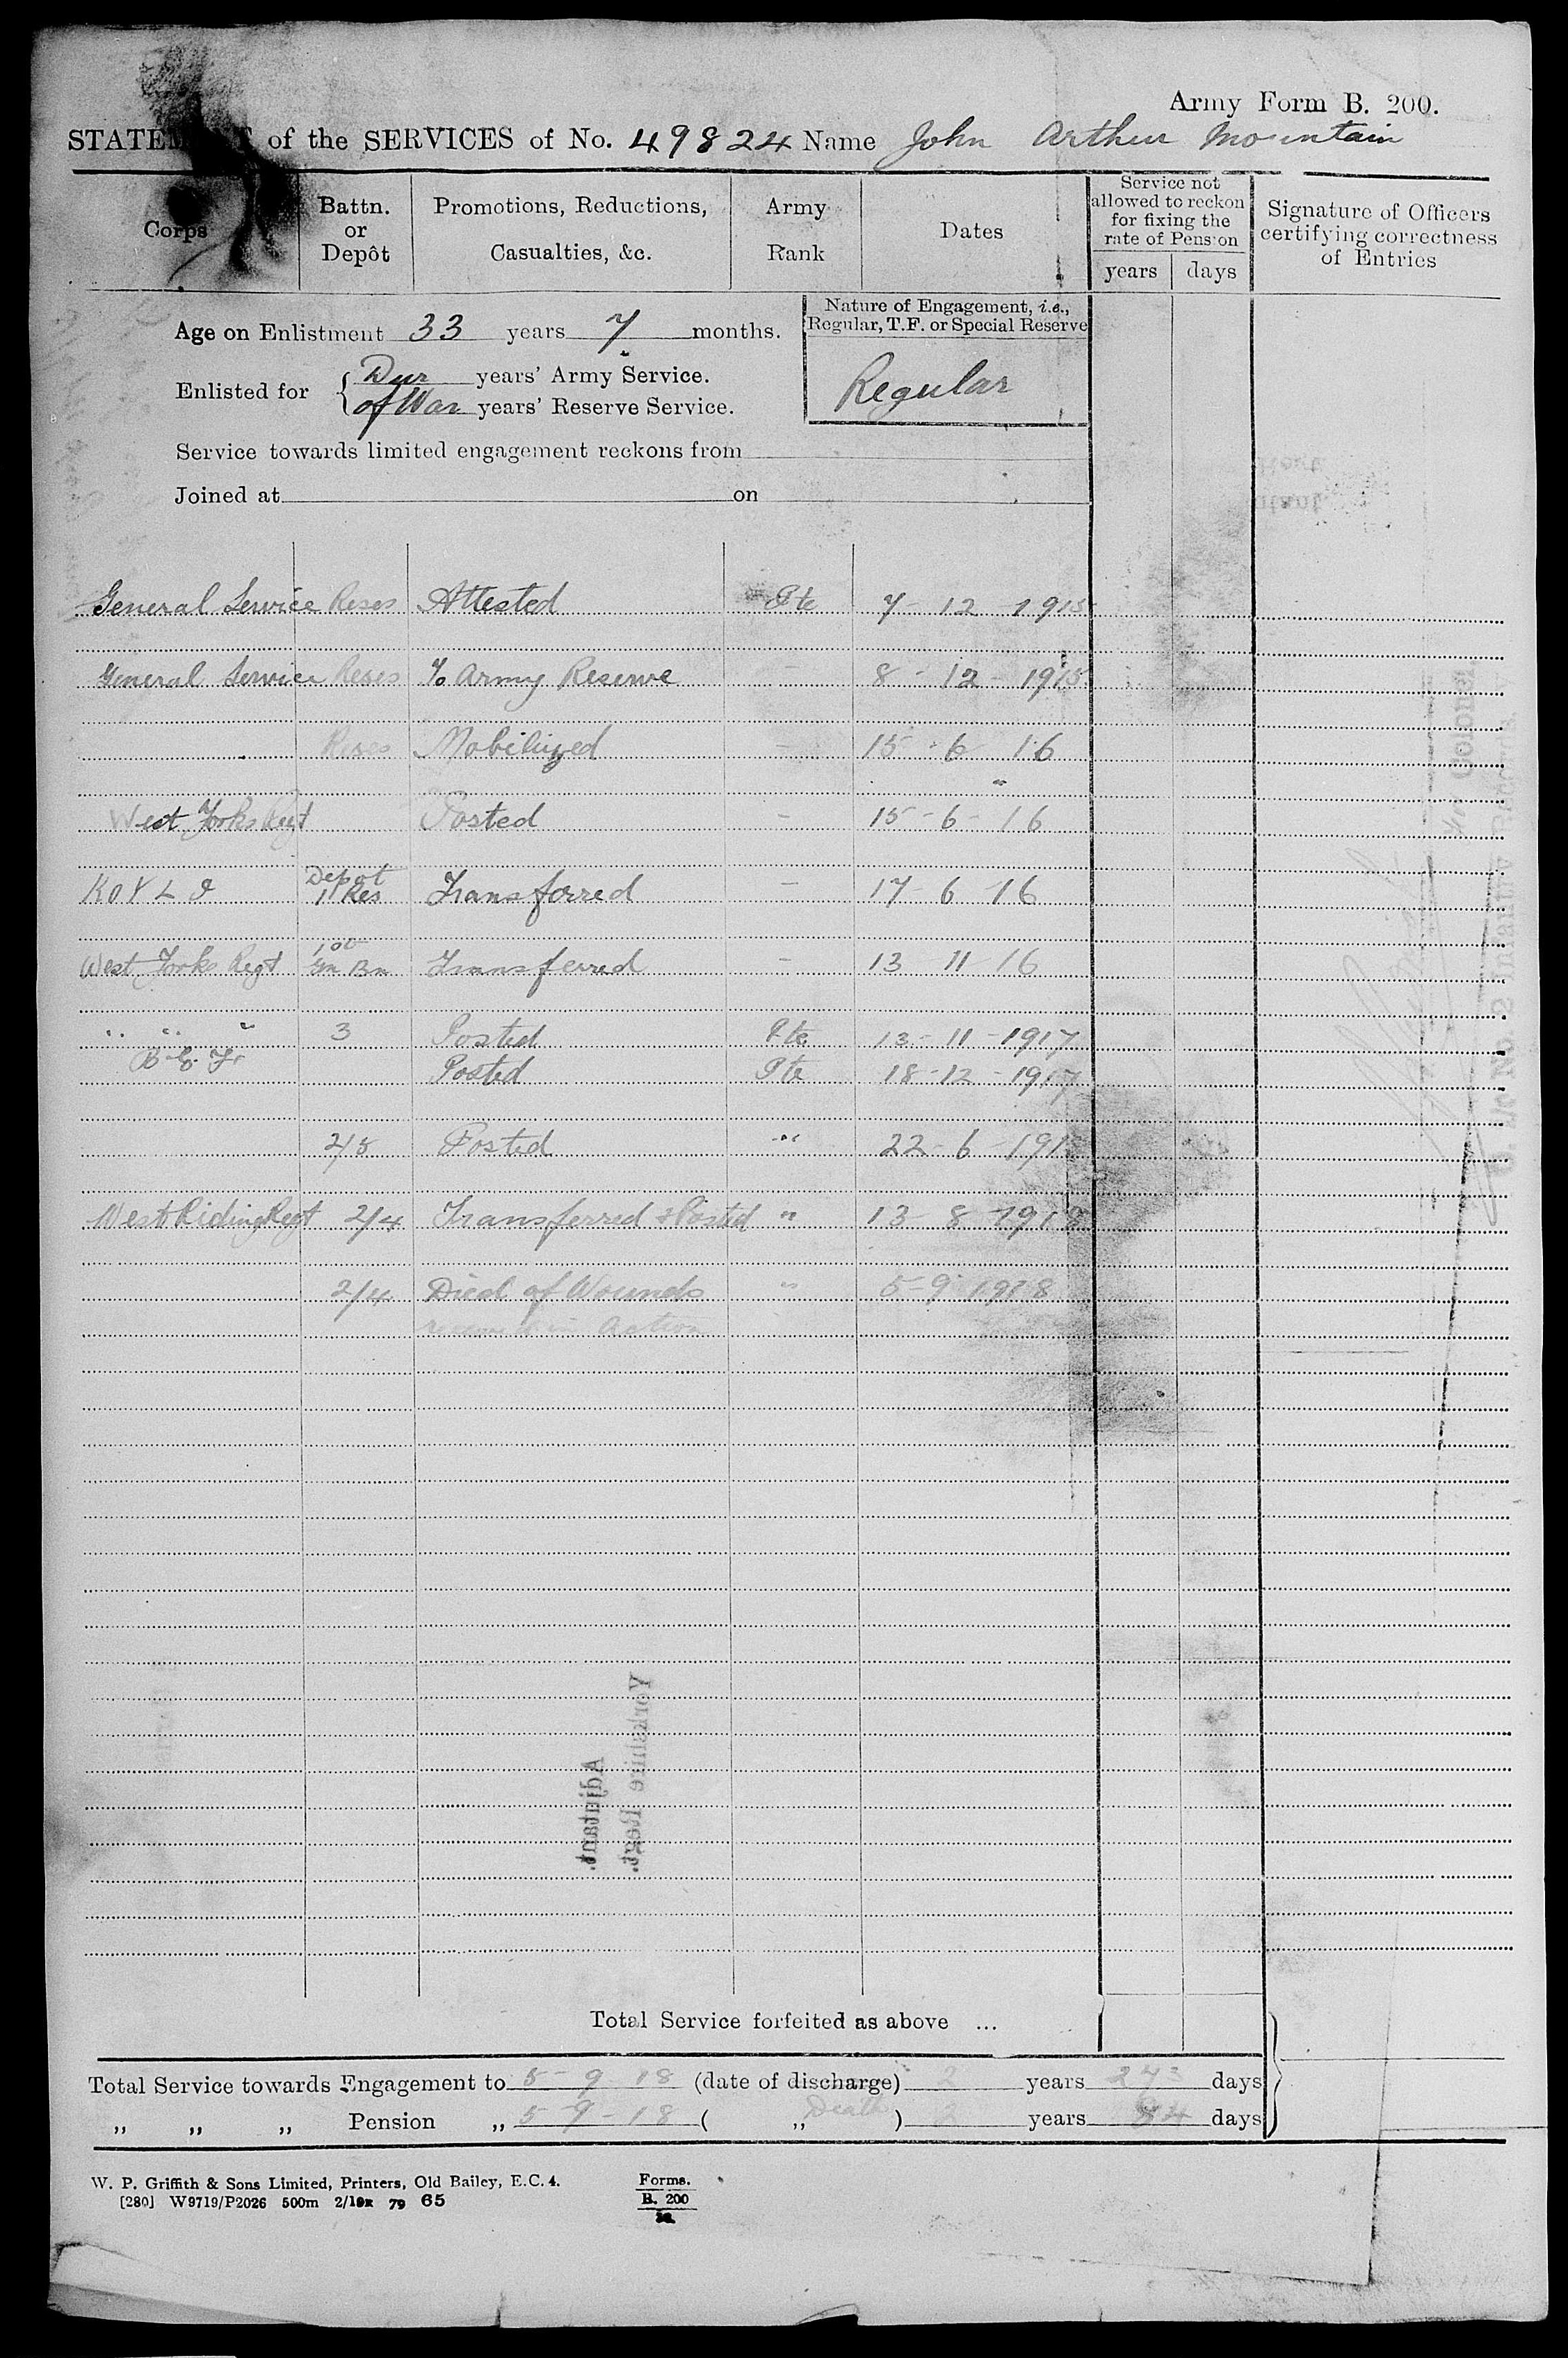 Army Form B. 200.
STATEMENT of the SERVICES of No. 49824 Name John Arthur Mountain
Corps
Battn. or Depôt
Promotions, Reductions, Casualties, &c.
Army Rank
Dates
Service not allowed to reckon for fixing the rate of Pension
years days
Signature of Officers certifying correctness of Entries
Age on Enlistment 33 years 7 months.
Nature of Engagement, i.e., Regular, T.F. or Special Reserve
Regular
Enlisted for { Dur years' Army Service.
of War years' Reserve Service.
Service towards limited engagement reckons from
Joined at on
General Service Reses Attested Pte 7-12-1915
General Service Reses To Army Reserve - 8-12-1915
Reses Mobilized - 15-6-16
West Yorks Regt Posted - 15-6-16
K O Y L I Depot 11 Res Transferred - 17-6-16
West Yorks Regt Bn Transferred - 13 11 16
" " " 3 Posted Pte 13-11-1917
B.E.F. Posted Pte 18-12-1917
2/5 Posted " 22-6-191
West Riding Regt 2/4 Transferred & Posted " 13-8-1918
2/4 Died of Wounds " 5-9-1918
received in Action
Yorkshire Regt.
Adjutant.
Total Service forfeited as above ...
Total Service towards Engagement to 5-9-18 (date of discharge) 2 years 273 days
" " " Pension " 5-9-18 ( " Death ) 2 years 84 days
W. P. Griffith & Sons Limited, Printers, Old Bailey, E.C. 4.
[280] W9719/P2026 500m 2/18x 79 65
Forms.
B. 200